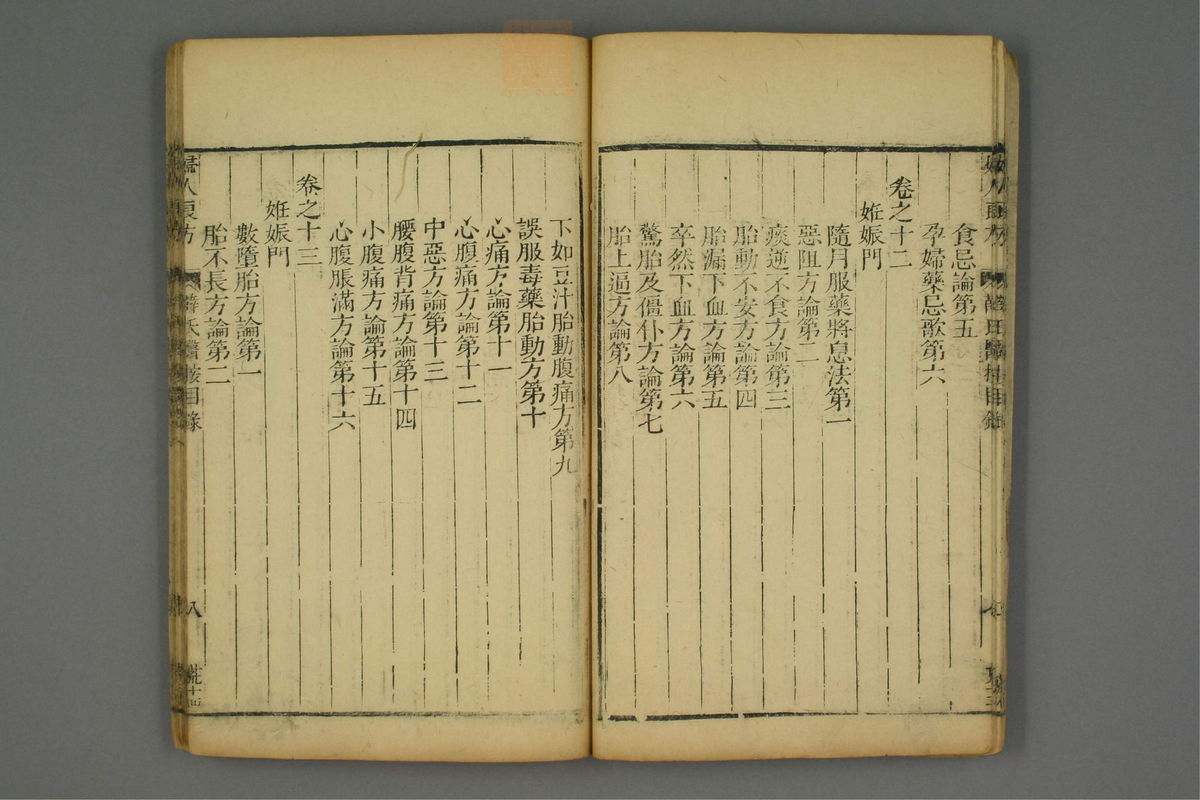 食忌論第五
孕婦藥忌歌第六
卷之十二
姙娠門
隨月服藥將息法第一
惡阻方論第二
痰逆不食方論第三
胎動不安方論第四
胎漏下血方論第五
卒然下血方論第六
驚胎及僵仆方論第七
胎上逼方論第八
下如豆汁胎動腹痛方第九
誤服毒藥胎動方第十
心痛方論第十一
心腹痛方論第十二
中惡方論第十三
腰腹背痛方論第十四
小腹痛方論第十五
心腹脹滿方論第十六
卷之十三
姙娠門
數墮胎方論第一
胎不長方論第二
婦人良方 薛氏醫案目錄 八